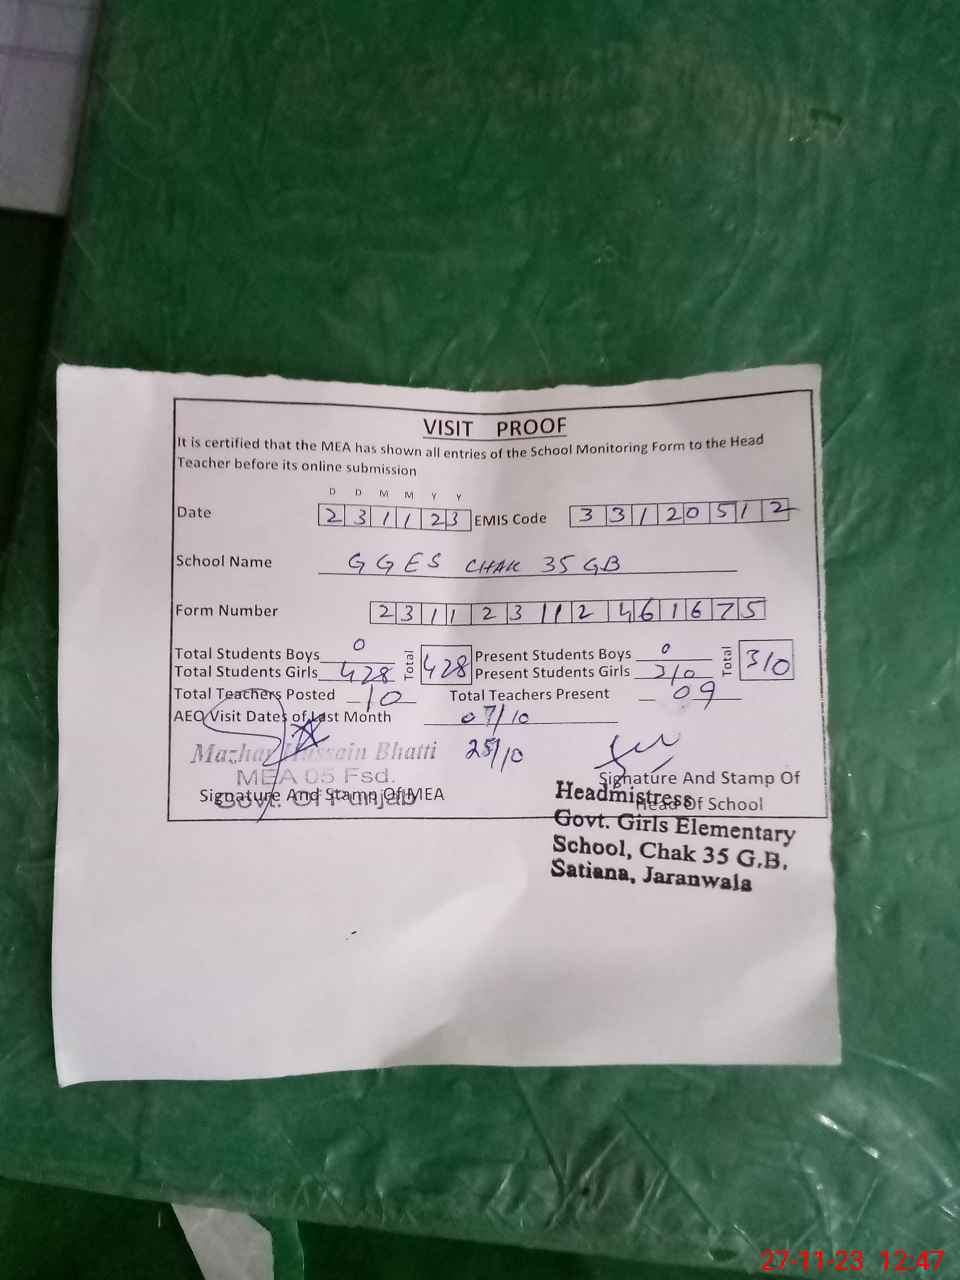 VISIT PROOF
It is certified that the MEA has shown all entries of the School Monitoring Form to the Head
Teacher before its online submission
D D M M Y Y
Date 2 3 1 1 2 3 EMIS Code 3 3 1 2 0 5 1 2
School Name GGES CHAK 35 GB
Form Number 2 3 1 1 2 3 1 1 2 4 6 1 6 7 5
Total Students Boys 0 Total 428 Present Students Boys 0 Total 310
Total Students Girls 428 Present Students Girls 310
Total Teachers Posted 10 Total Teachers Present 09
AEO Visit Dates of Last Month 07/10
25/10
Mazhar Hussain Bhatti
MEA 05 Fsd.
Govt. Of Punjab
Signature And Stamp Of MEA
Signature And Stamp Of
Head Of School
Headmistress
Govt. Girls Elementary
School, Chak 35 G.B.
Satiana, Jaranwala
27-11-23 12:47